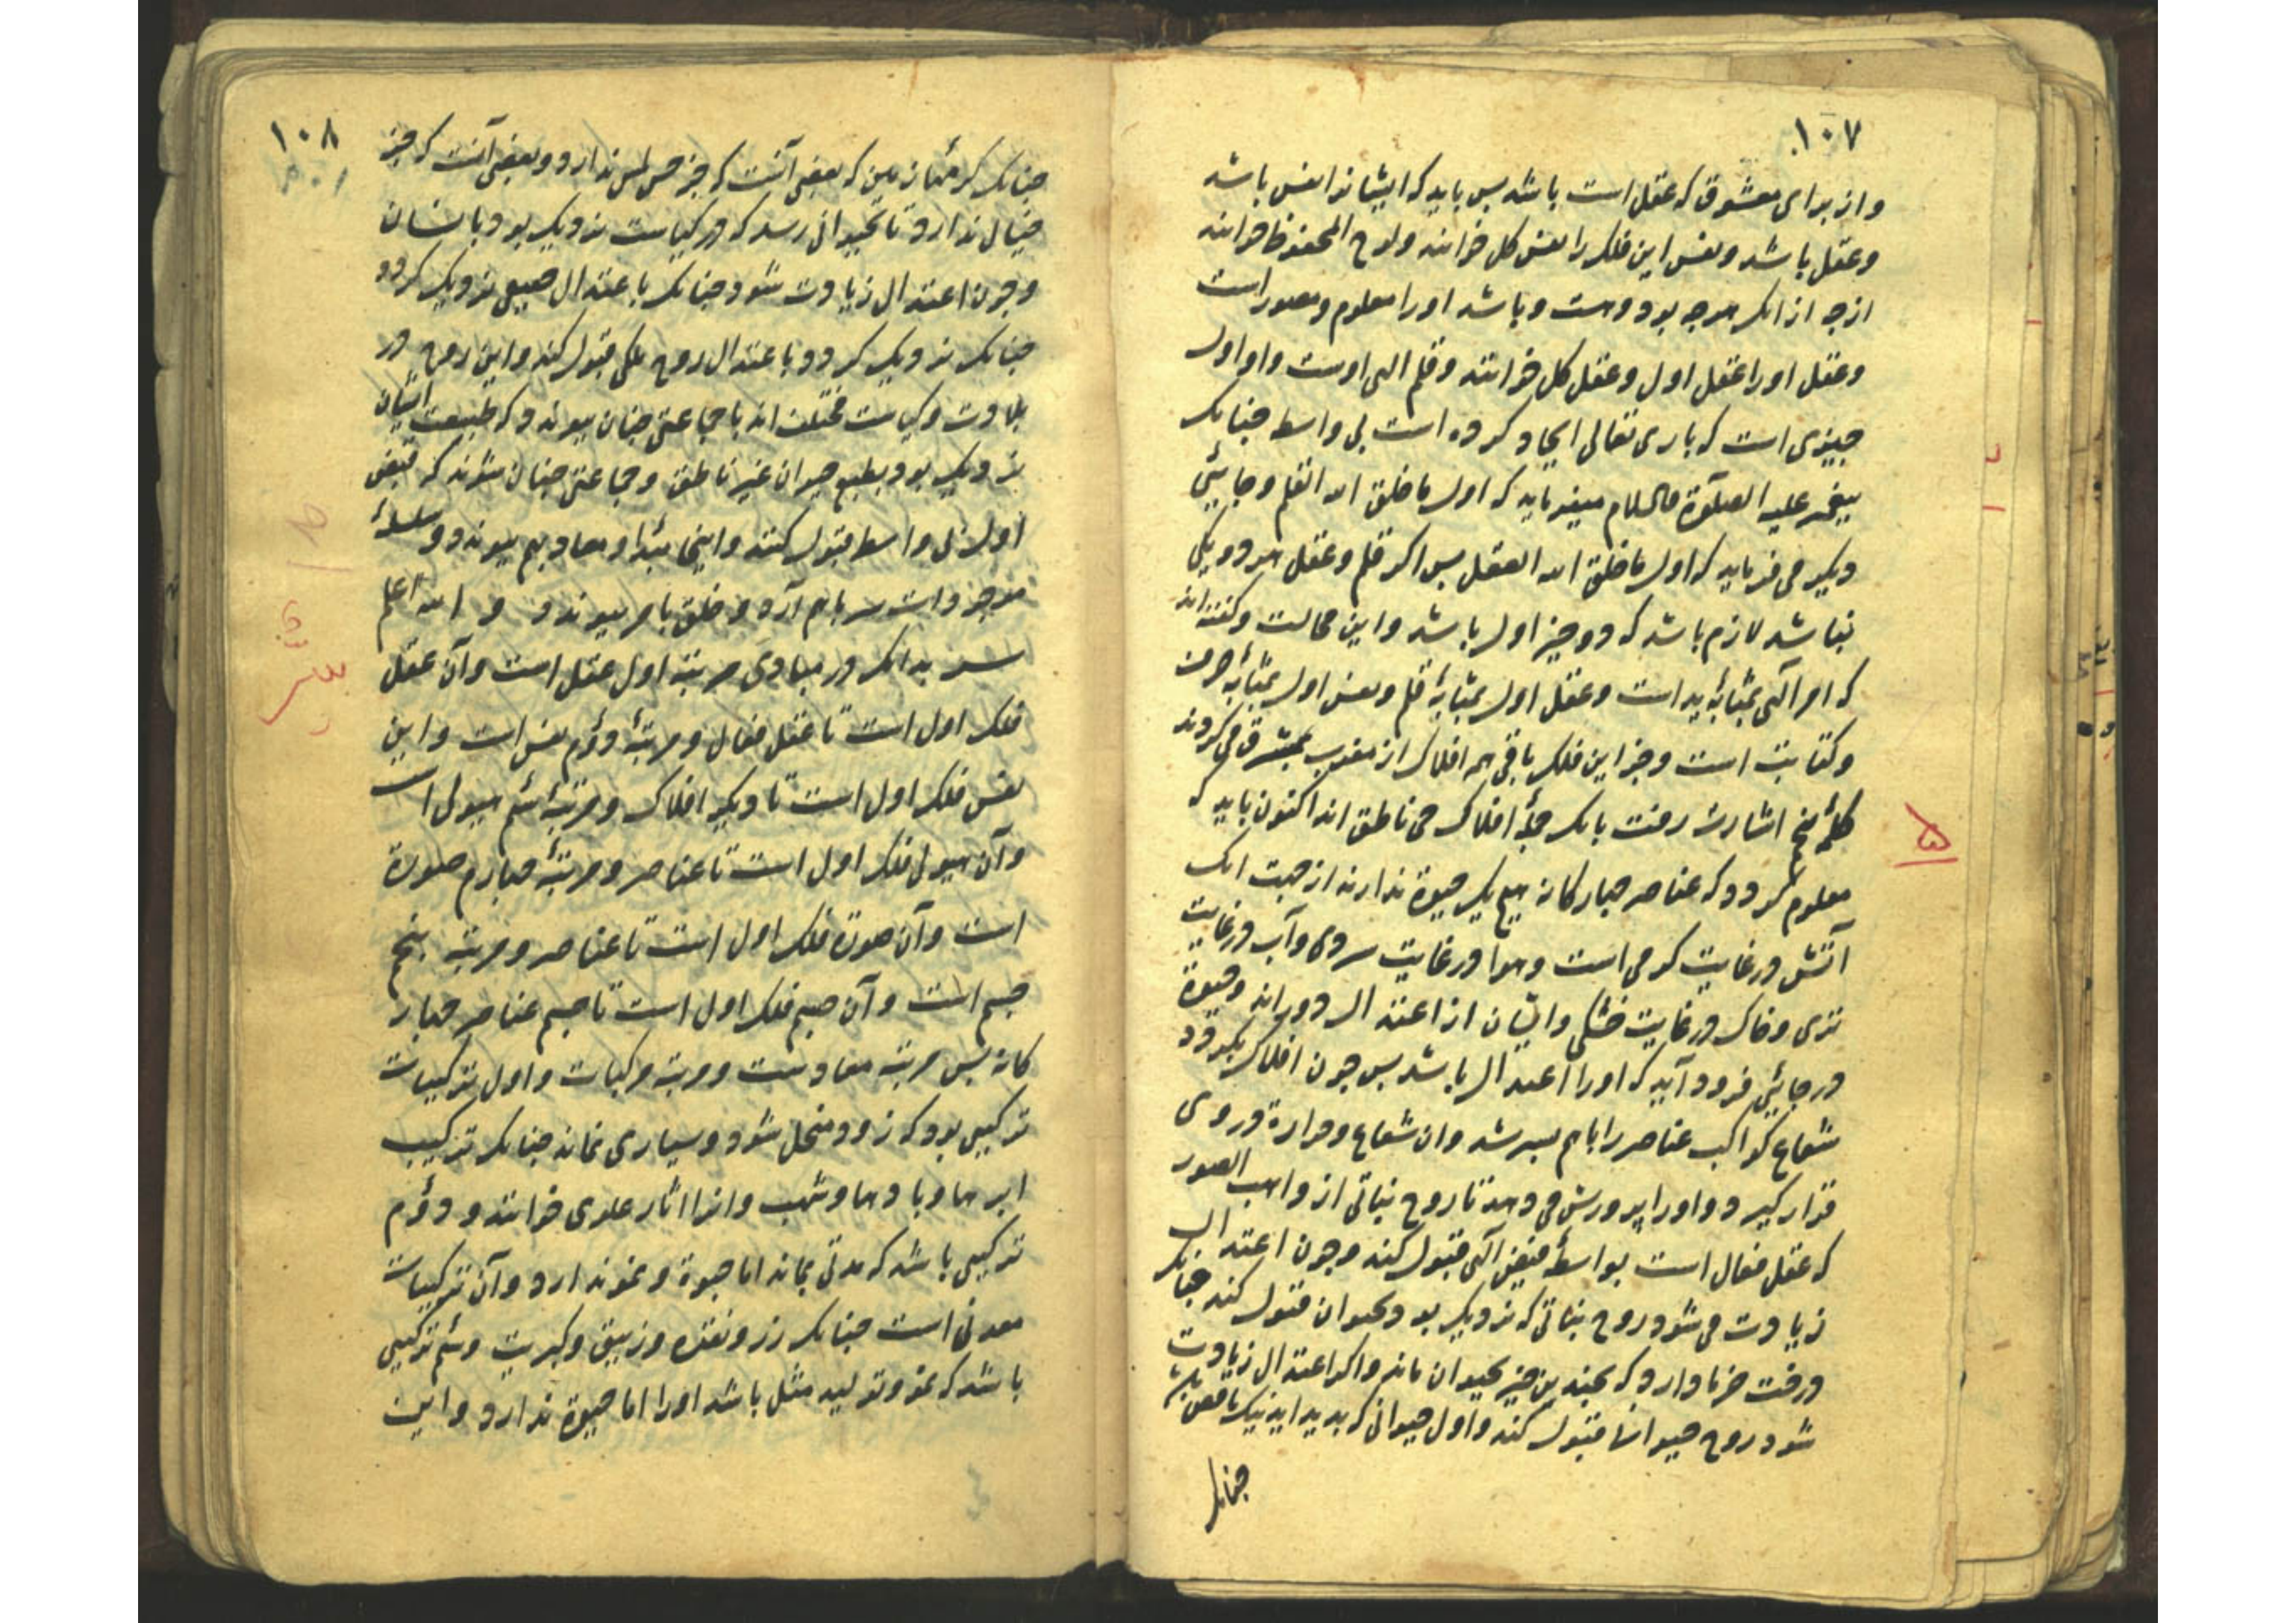 ۱۰۷
و از برای معشوق که عقل است باشد بس باید که ایشانرا نفس باشد
و عقل باشد و نفس این فلک را نفس کل خوانند و لوح المحفوظ خوانند
ازجه ازانک هرجه بود و هست و باشد او را معلوم و مصور است
و عقل او را عقل اول و عقل کل خوانند و قلم الهی اوست و او اول
جیزی است که باری تعالی ایجاد کرده است بی واسطه جنانک
بیغمبر علیه الصلوة والسلام میفرماید که اول ما خلق الله القلم و جائیی
دیکر می فرماید که اول ما خلق الله العقل بس اکر قلم و عقل هر دو یکی
نباشد لازم باشد که دو جیز اول باشد و این محالست و کفته اند
که امر آلهی بمثابهٔ ید است و عقل اول بمثابهٔ قلم و نفس اول بمثابهٔ حرف
و کتابت است و جز این فلک باقی همه افلاک از مغرب بمشرق می کردند
اشارت رفت بانک جملهٔ افلاک حی ناطق اند اکنون باید که
معلوم کردد که عناصر جهارکانه هیج یک حیوة ندارند از جهت انک
آتش در غایت کرمی است و هوا در غایت سردی و آب در غایت
تری و خاک در غایت خشکی و ایشان از اعتدال دوراند و حیوة
در جائیی فرود آید که او را اعتدال باشد بس جون افلاک بکردد
شعاع کواکب عناصر را باهم بسرشد و ان شعاع و حرارة در وی
قرار کیرد و او را برورش می دهد تا روح نباتی از واهب الصور
که عقل فعال است بواسطهٔ فیض آلهی قبول کند و جون اعتدال
زیادت می شود روح نباتی که نزدیک بود بحیوان قبول کند جنانک
درخت خرما دارد که بجندین جیز بحیوان ماند و اکر اعتدال زیادت
شود روح حیوانی قبول کند و اول حیوانی که بدید اید نیک ناقص باشد
جنانک
۱۰۸
جنانک کرمهٔ زمین که بعضی آنست که جز حس لمس ندارد و بعضی آنست که جز
خیال ندارد تا بحیوانی رسد که در کیاست نزدیک بود بانسان
و جون اعتدال زیادت شود جنانک باعتدال حقیقی نزدیک کردد
جنانک نزدیک کردد باعتدال روح ملکی قبول کند و این روح در
بلادت و کیاست مختلف اند با جماعتی جنان بیوندد که طبیعت ایشان
نزدیک بود بطبع حیوان غیر ناطق و جماعتی جنان شوند که فیض
اول بی واسطه قبول کنند و اینجا مبدا و معاد بهم بیوندد و سلسلهٔ
موجودات سر باهم آرد و خلق بامر بیوندد و الله اعلم
بدانک در مبادی مرتبهٔ اول عقل است و آن عقل
فلک اول است تا عقل فعال و مرتبهٔ دوّم نفس است و این
نفس فلک اول است تا دیکر افلاک و مرتبهٔ سیّم هیولی است
و آن هیولی فلک اول است تا عناصر و مرتبهٔ جهارم صورة
است و آن صورة فلک اول است تا عناصر و مرتبه بنجم
جسم است و آن جسم فلک اول است تا جسم عناصر جهار
کانه بس مرتبه معادست و مرتبه مرکبات و اول ترکیبات
ترکیبی بود که زود منحل شود و بسیاری نماند جنانک ترکیب
ابرها و بادها و شهب و انرا اثار علوی خوانند و دوّم
ترکیبی باشد که مدتی بماند اما حیوة و نمو ندارد و آن ترکیبات
معدنی است جنانک زر و نقره و زیبق و کبریت و سیّم ترکیبی
باشد که نمو و تولید مثل باشد او را اما حیوة ندارد و این